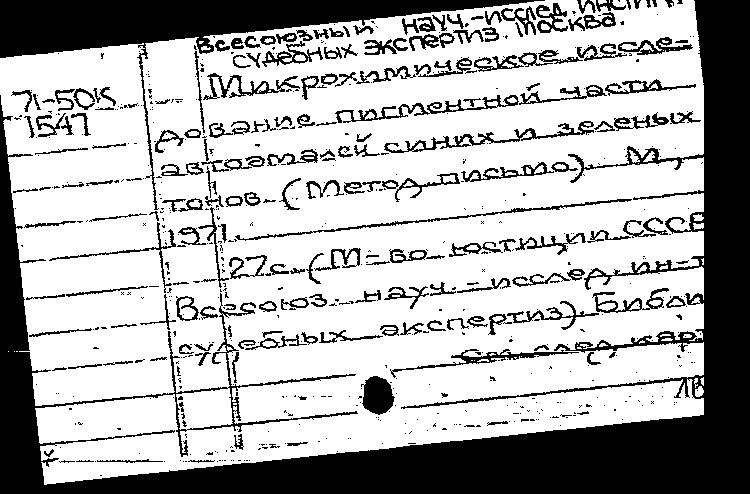 Всесоюзный науч.-исслед. инстит
судебных экспертиз. Москва.
71-50К
1547
Микрохимическое иссле-
дование пигментной части
автоэмалей синих и зеленых
тонов. (Метод. письмо). М.,
1971.
27с. (М-во юстиции СССР
Всесоюз. науч.-исслед. ин-т
судебных экспертиз). Библи
см. след. карт